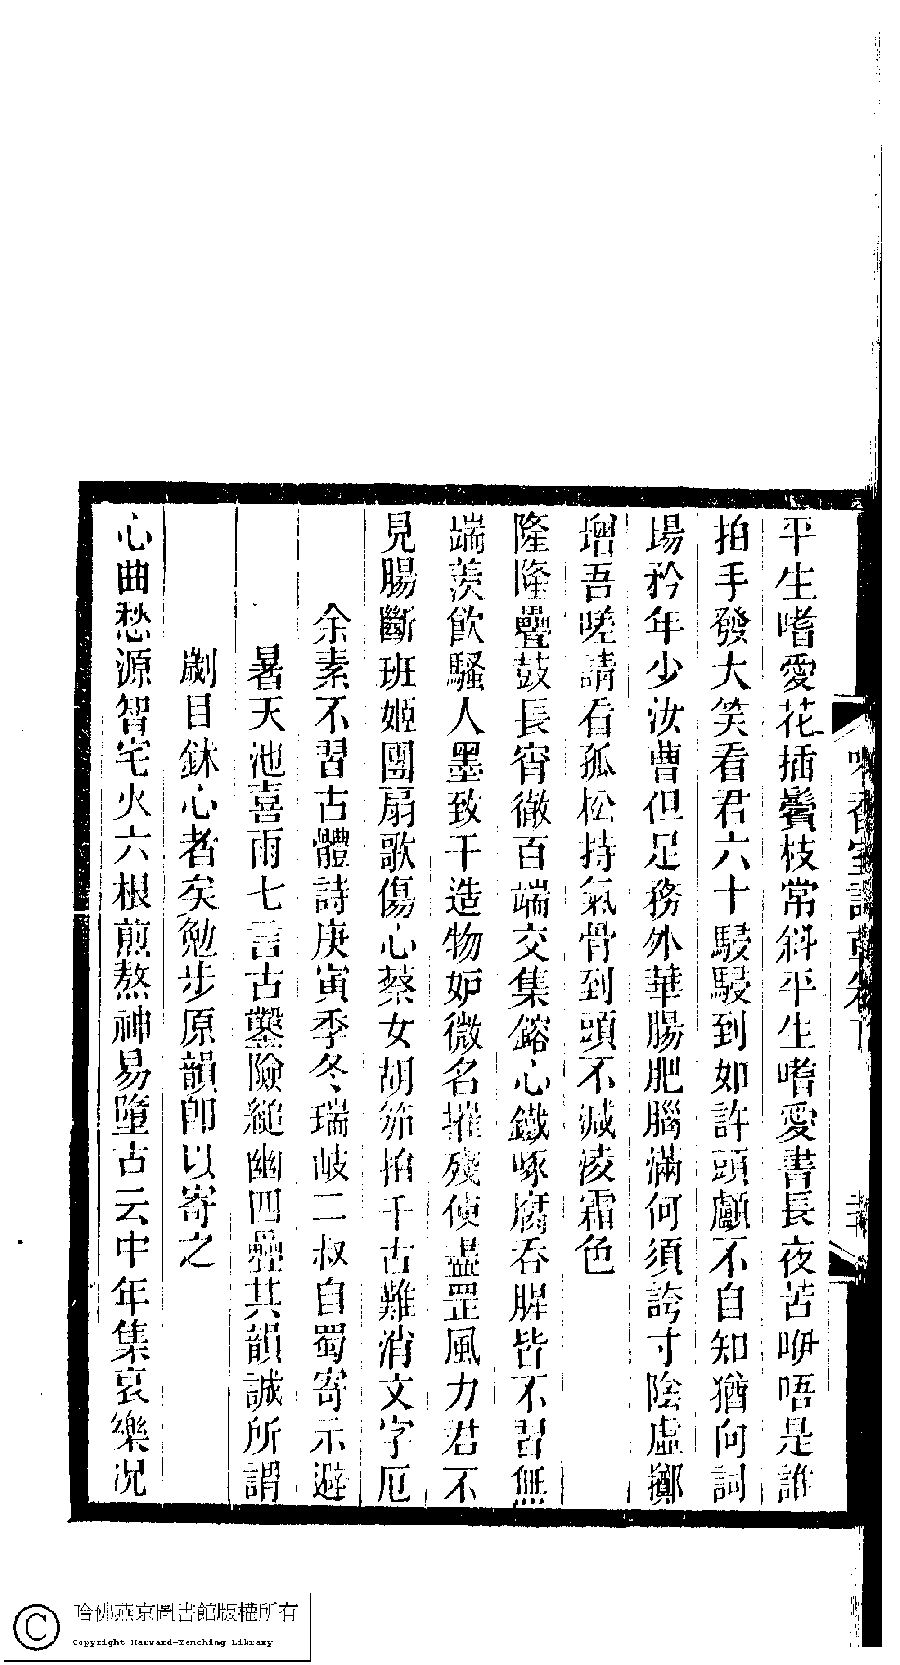 平生嗜愛花插鬢枝常斜平生嗜愛書長夜苦咿唔是誰
拍手發大笑看君六十駸駸到如許頭顱不自知猶向詞
場矜年少汝曹但足務外華腸肥腦滿何須誇寸陰虛擲
增吾嗟請看孤松持氣骨到頭不減凌霜色
隆隆疊鼓長宵徹百端交集鎔心鐵啄腐吞腥皆不習無
端羨飲騷人墨致干造物妒微名摧殘使盡罡風力君不
見腸斷班姬團扇歌傷心蔡女胡笳拍千古難消文字厄
余素不習古體詩庚寅季冬瑞岐二叔自蜀寄示避
暑天池喜雨七言古鑿險縋幽四疊其韻誠所謂
劌目鉥心者矣勉步原韻卽以寄之
心曲愁源智宅火六根煎熬神易墮古云中年集哀樂况
香室詩草卷下
哈佛燕京圖書館版權所有
Copyright Harvard-Yenching Library